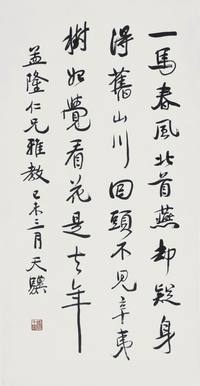 一馬春風北首燕却疑身
得舊山川回頭不見辛夷
樹始覺看花是去年
益隆仁兄雅教己未三月天騏